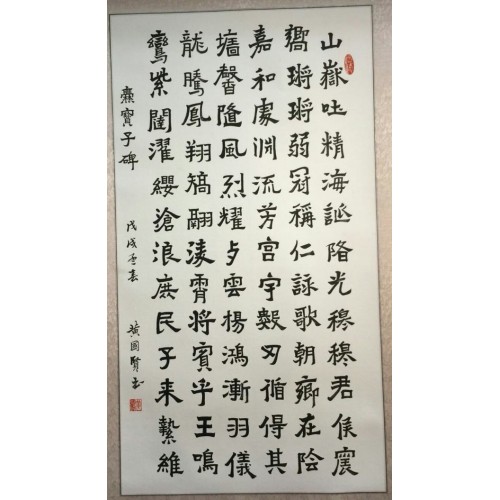 山嶽吐精海誕陼光穆穆君侯震
嚮鏘鏘弱冠稱仁詠歌朝鄉在陰
嘉和處渊流芳宮宇數仞循得其
墻馨隨風烈耀与雲楊鴻漸羽儀
龍騰鳳翔矯翮淩霄將賓乎王鳴
鸞紫闥濯纓滄浪庶民子来縶維
爨寶子碑
戊戌孟春
黃國賢書